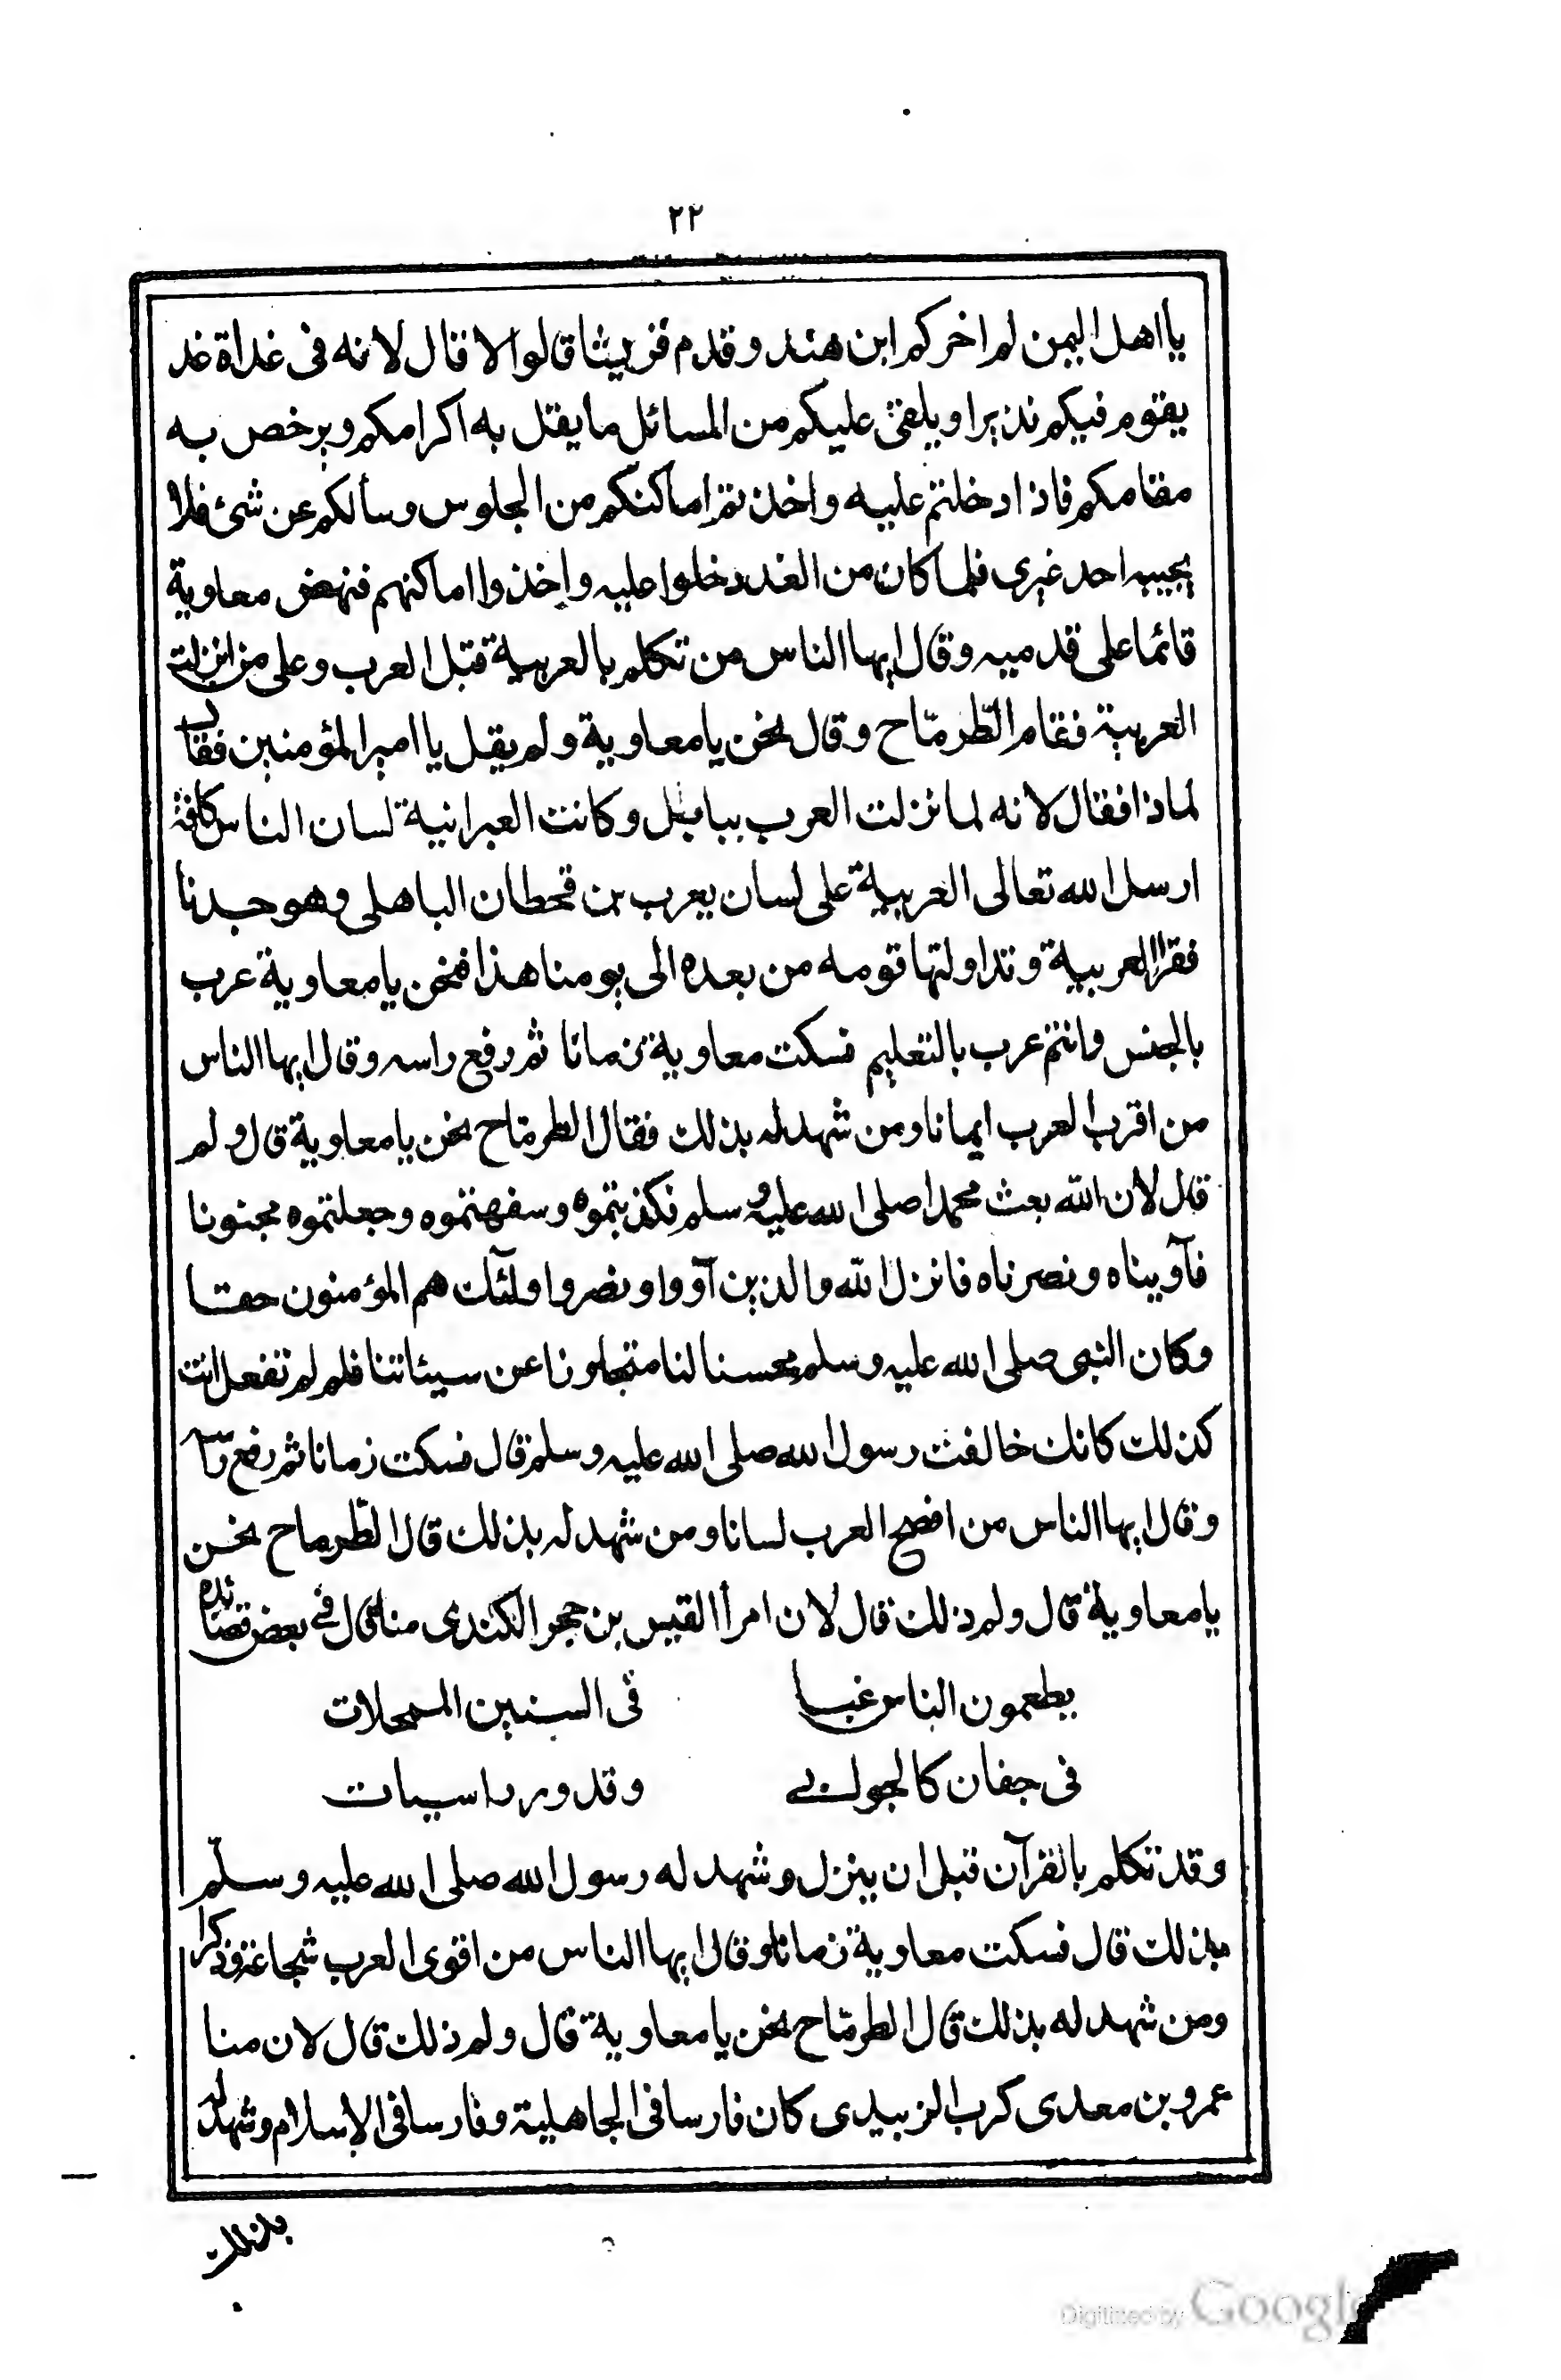 ٢٢
يا اهل اليمن لم اخركم ابن هند وقدم قريشا قالوا لا قال لانه فى غداة غد
يقوم فيكم نذيرا ويلقى عليكم من المسائل ما يقتل به اكرامكم ويرخص به
مقامكم فاذا دخلتم عليه واخذتم اماكنكم من الجلوس وسألكم عن شئ فلا
يجيبه احد غيرى فلما كان من الغد دخلوا عليه واخذوا اماكنهم فنهض معاوية
قائما على قدميه وقال ايها الناس من تكلم بالعربية قبل العرب وعلى من انزلت
العربية فقام الطّرمّاح وقال نحن يا معاوية ولم يقل يا امير المؤمنين فقال
لماذا فقال لانه لما نزلت العرب ببابل وكانت العبرانية لسان الناس كافة
ارسل الله تعالى العربية على لسان يعرب بن قحطان الباهلى وهو جدنا
فقرا العربية وتداولتها قومه من بعده الى يومنا هذا فنحن يا معاوية عرب
بالجنس وانتم عرب بالتعليم فسكت معاوية زمانا ثم رفع راسه وقال ايها الناس
من اقرب العرب ايمانا ومن شهد له بذلك فقال الطرمّاح نحن يا معاوية قال ولم
قال لان الله بعث محمدا صلى الله عليه وسلم فكذبتموه وسفهتموه وجعلتموه مجنونا
فآويناه ونصرناه فانزل الله والذين آووا ونصروا اولئك هم المؤمنون حقا
وكان النبى صلى الله عليه وسلم محسنا لنا متجاوزا عن سيئاتنا فلم لم تفعل انت
كذلك كانك خالفت رسول الله صلى الله عليه وسلم قال فسكت زمانا ثم رفع رأسه
وقال ايها الناس من افصح العرب لسانا ومن شهد له بذلك قال الطّرماح نحن
يا معاوية قال ولم ذلك قال لان امرأ القيس بن حجر الكندى منا قال فى بعض قصائده
يطعمون الناس غبا فى السنين الممحلات
فى جفان كالجوابى وقدور راسيات
وقد تكلم بالقرآن قبل ان ينزل وشهد له رسول الله صلى الله عليه وسلّم
بذلك قال فسكت معاوية زمانا وقال ايها الناس من اقوى العرب شجاعة وذكرا
ومن شهد له بذلك قال الطرمّاح نحن يا معاوية قال ولم ذلك قال لان منا
عمرو بن معدى كرب الزبيدى كان فارسا فى الجاهلية وفارسا فى الاسلام وشهد له
بذلك
Digitized by Google